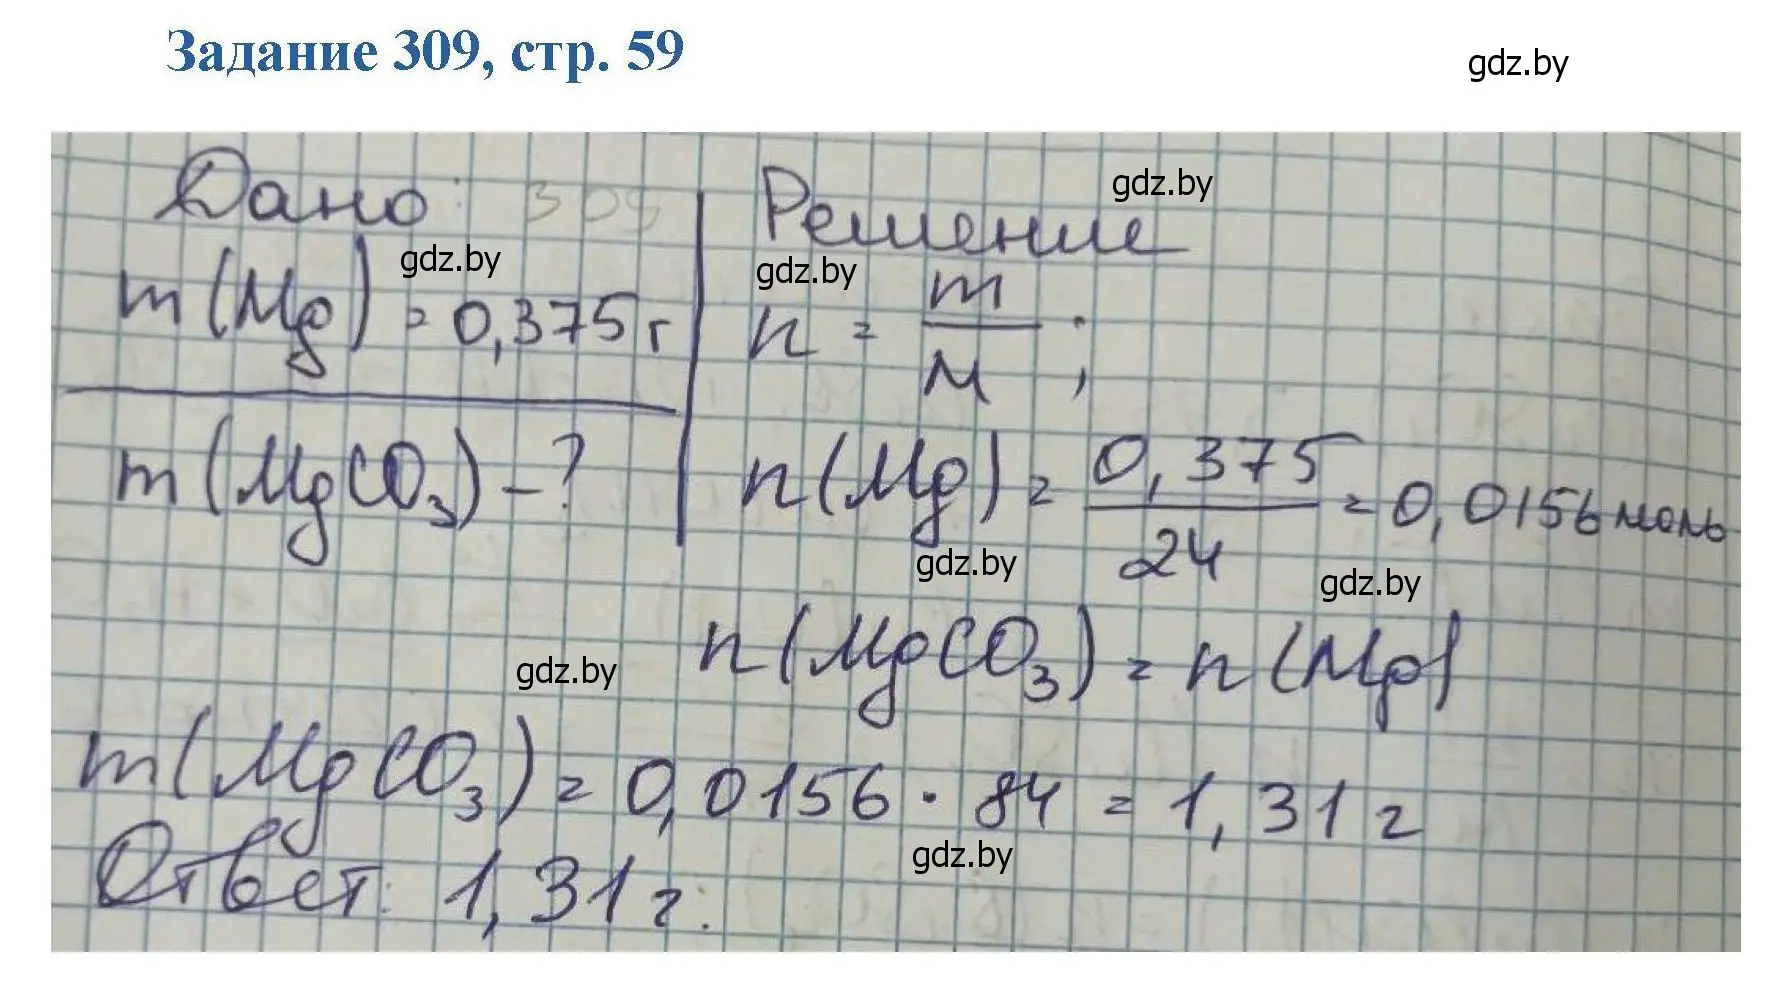 Задание 309, стр. 59
gdz.by
Дано: 309
m(Mg) = 0,375 г
m(MgCO₃) - ?
Решение
gdz.by
gdz.by
gdz.by
n = m/M ;
n(Mg) = 0,375/24 = 0,0156 моль
gdz.by
gdz.by
n(MgCO₃) = n(Mg)
gdz.by
m(MgCO₃) = 0,0156 · 84 = 1,31 г
gdz.by
Ответ: 1,31 г.